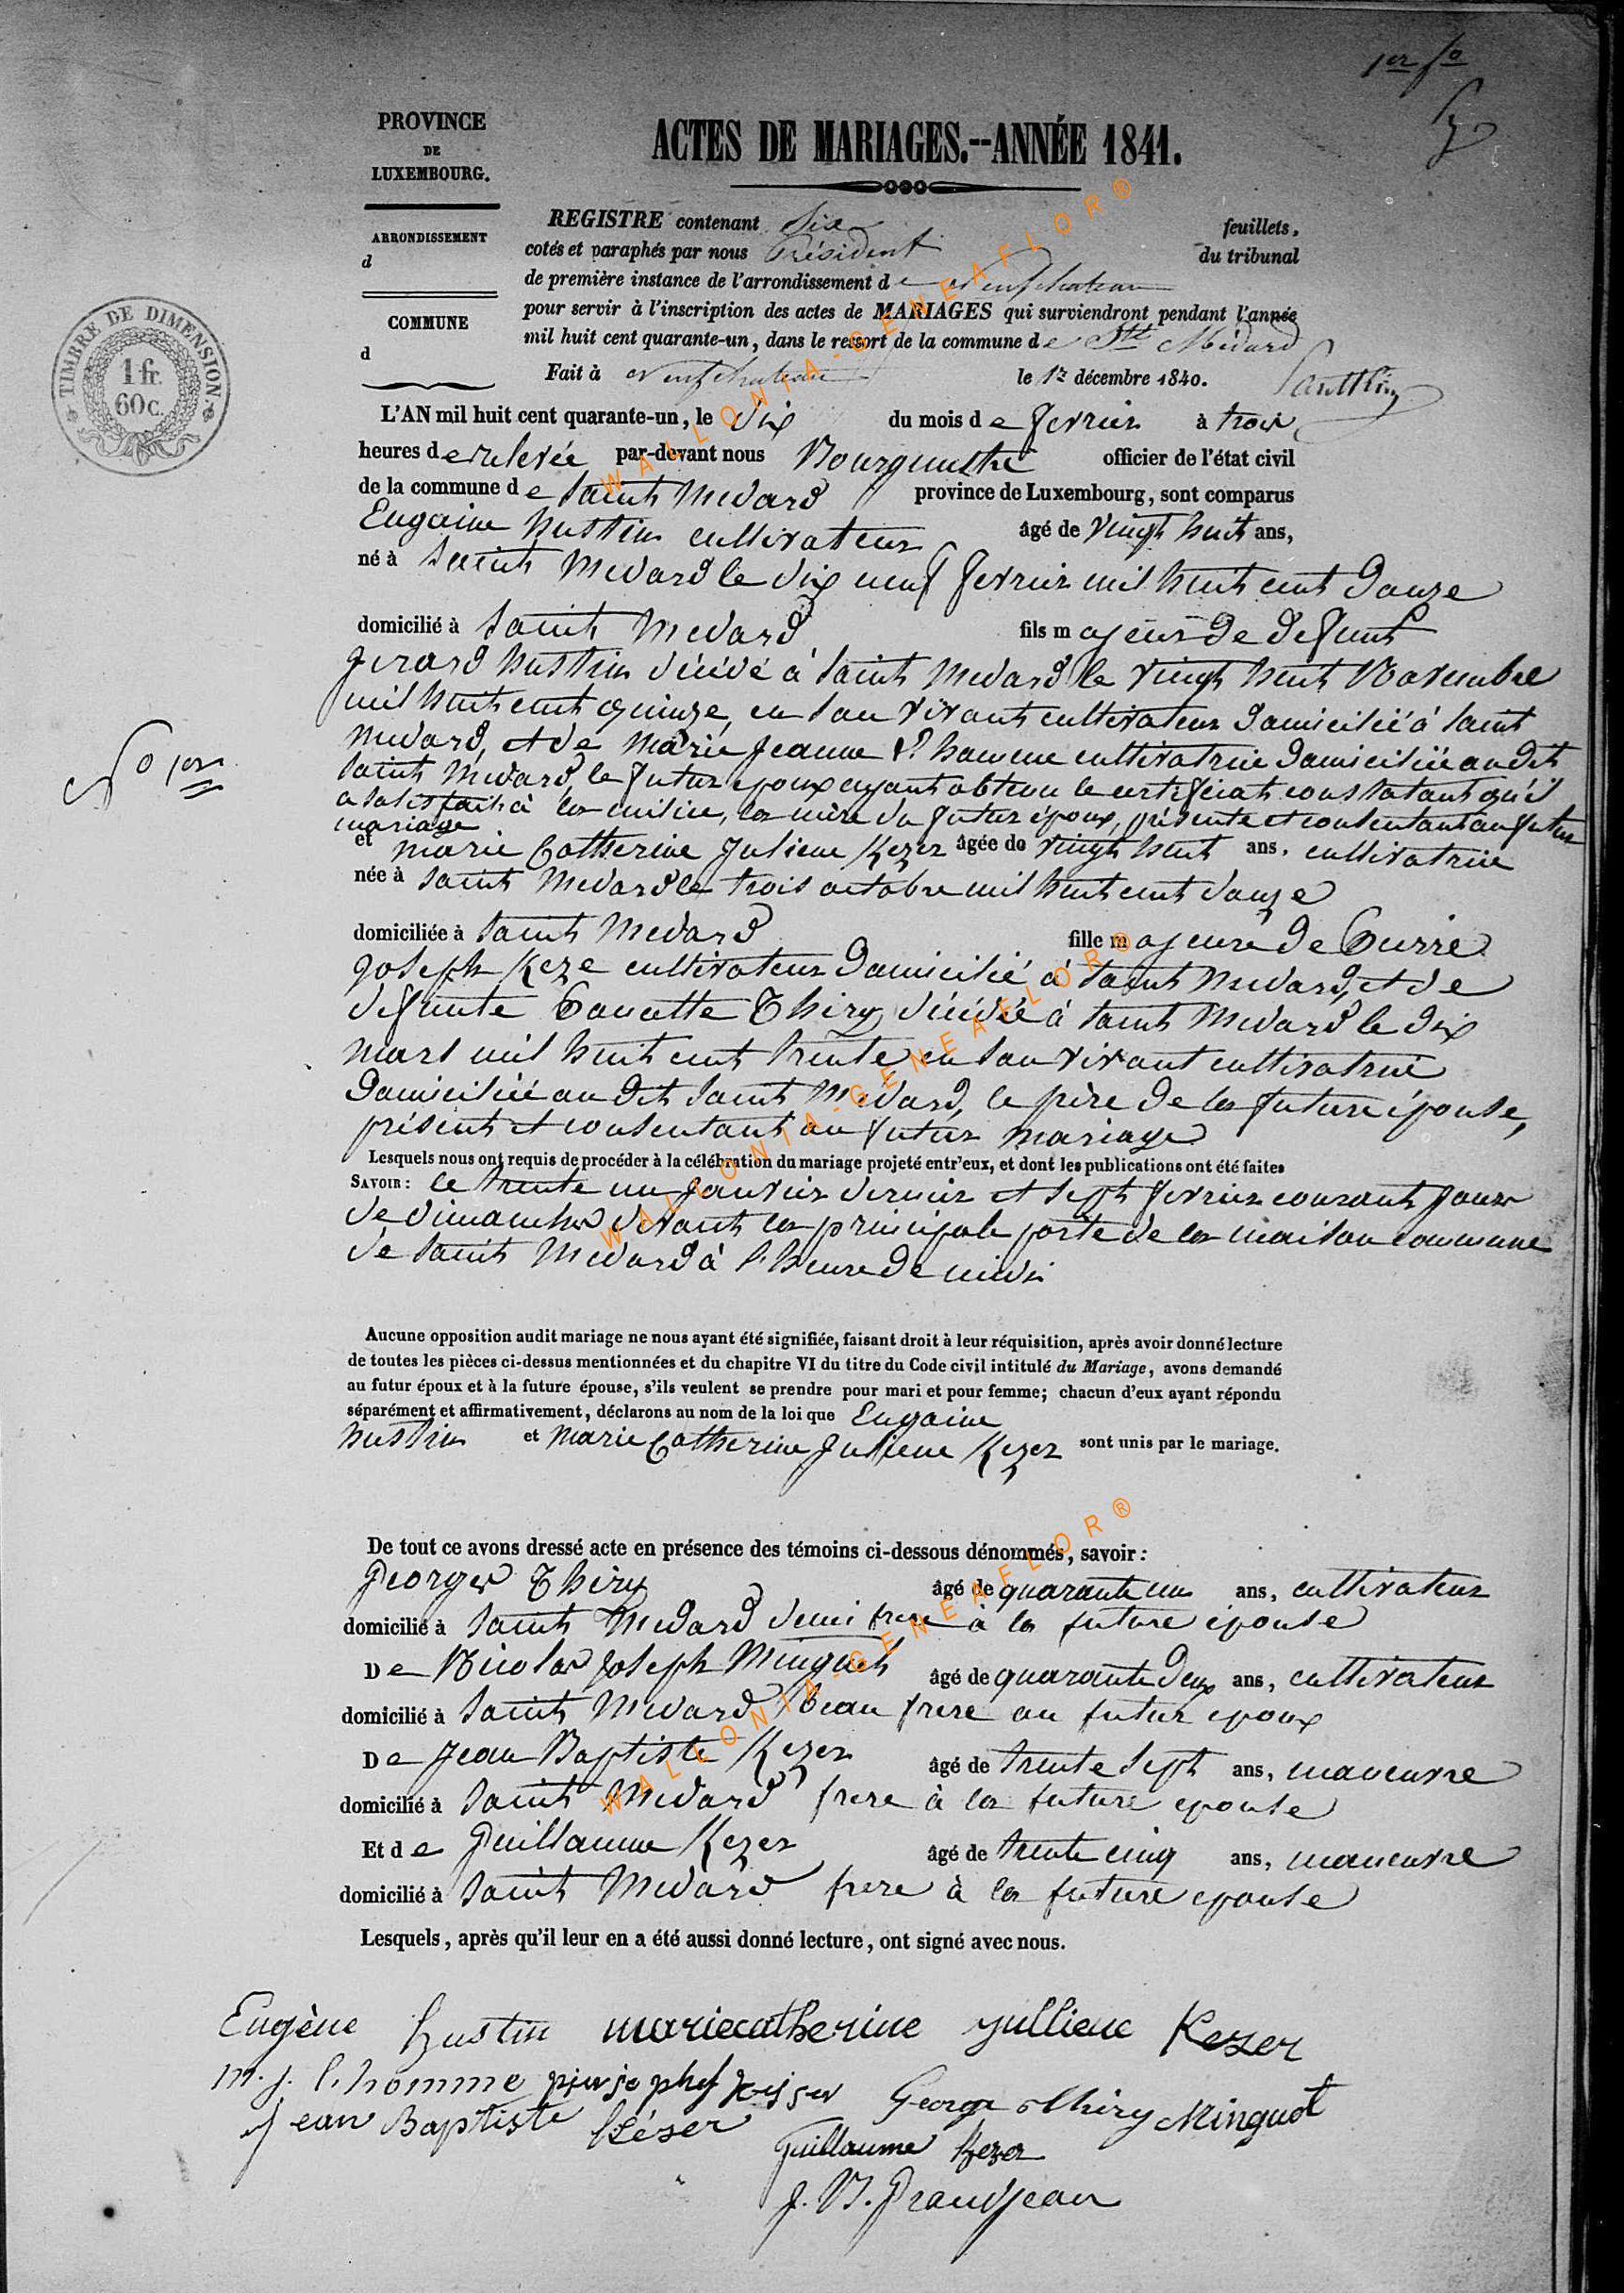 1er fo
PROVINCE
DE
LUXEMBOURG.
ACTES DE MARIAGES.--ANNÉE 1841.
ARRONDISSEMENT
d
COMMUNE
d
TIMBRE DE DIMENSION.
1 fr.
60 c.
REGISTRE contenant Six feuillets,
cotés et paraphés par nous Président du tribunal
de première instance de l'arrondissement de Neufchateau
pour servir à l'inscription des actes de MARIAGES qui surviendront pendant l'année
mil huit cent quarante-un, dans le ressort de la commune de St Médard
Fait à Neufchateau le 1er décembre 1840.
L'AN mil huit cent quarante-un, le dix du mois de fevrier à trois
heures de relevée par-devant nous Bourguestre officier de l'état civil
de la commune de Saint Medard province de Luxembourg, sont comparus
Eugaine hustin cultivateur âgé de vingt huit ans,
né à Saint Medard le dix neuf fevrier mil huit cent douze
domicilié à Saint Medard fils majeur de defunt
Gerard hustin décédé à Saint Medard le vingt huit Novembre
mil huit cent quinze, en son vivant cultivateur domicilié à Saint
Medard, et de Marie Jeanne l'homme cultivatrice domiciliée au dit
Saint Medard, le futur epoux ayant obtenu le certificat constatant qu'il
a satisfait à la milice, la mère du futur époux, présente et consentant au futur
mariage
No 1er
et Marie Catherine Juliene Kezer âgée de vingt huit ans, cultivatrice
née à Saint Medard le trois octobre mil huit cent douze
domiciliée à Saint Medard fille majeure de Pierre
Joseph Keze cultivateur domicilié à Saint Medard, et de
defunte Poncette Thiry décédée à Saint Medard le dix
mars mil huit cent trente en son vivant cultivatrice
domiciliée au dit Saint Medard, le père de la future épouse,
présent et consentant au futur mariage
Lesquels nous ont requis de procéder à la célébration du mariage projeté entr'eux, et dont les publications ont été faites
SAVOIR: le trente un janvier dernier et sept fevrier courant jour
de dimanche devant la principale porte de la maison commune
de Saint Medard à l'heure de midi
Aucune opposition audit mariage ne nous ayant été signifiée, faisant droit à leur réquisition, après avoir donné lecture
de toutes les pièces ci-dessus mentionnées et du chapitre VI du titre du Code civil intitulé du Mariage, avons demandé
au futur époux et à la future épouse, s'ils veulent se prendre pour mari et pour femme; chacun d'eux ayant répondu
séparément et affirmativement, déclarons au nom de la loi que Eugaine
hustin et Marie Catherine Juliene Kezer sont unis par le mariage.
De tout ce avons dressé acte en présence des témoins ci-dessous dénommés, savoir:
George Thiry âgé de quarante un ans, cultivateur
domicilié à Saint Medard demi frere à la future épouse
De Nicolas Joseph Minguet âgé de quarante deux ans, cultivateur
domicilié à Saint Medard beau frere au futur epoux
De Jean Baptiste Kezer âgé de trente Sept ans, maneuvre
domicilié à Saint Medard frere à la future epouse
Et de Guillaume Kezer âgé de trente cinq ans, maneuvre
domicilié à Saint Medard frere à la future epouse
Lesquels, après qu'il leur en a été aussi donné lecture, ont signé avec nous.
Eugène hustin mariecatherine julliene Kezer
m. j. l'homme George Thiry Minguet
Jean Baptiste Késer
Guillaume Kezer
J. N. Grandjean
WALLONIA-GENEAFLOR®
WALLONIA-GENEAFLOR®
WALLONIA-GENEAFLOR®